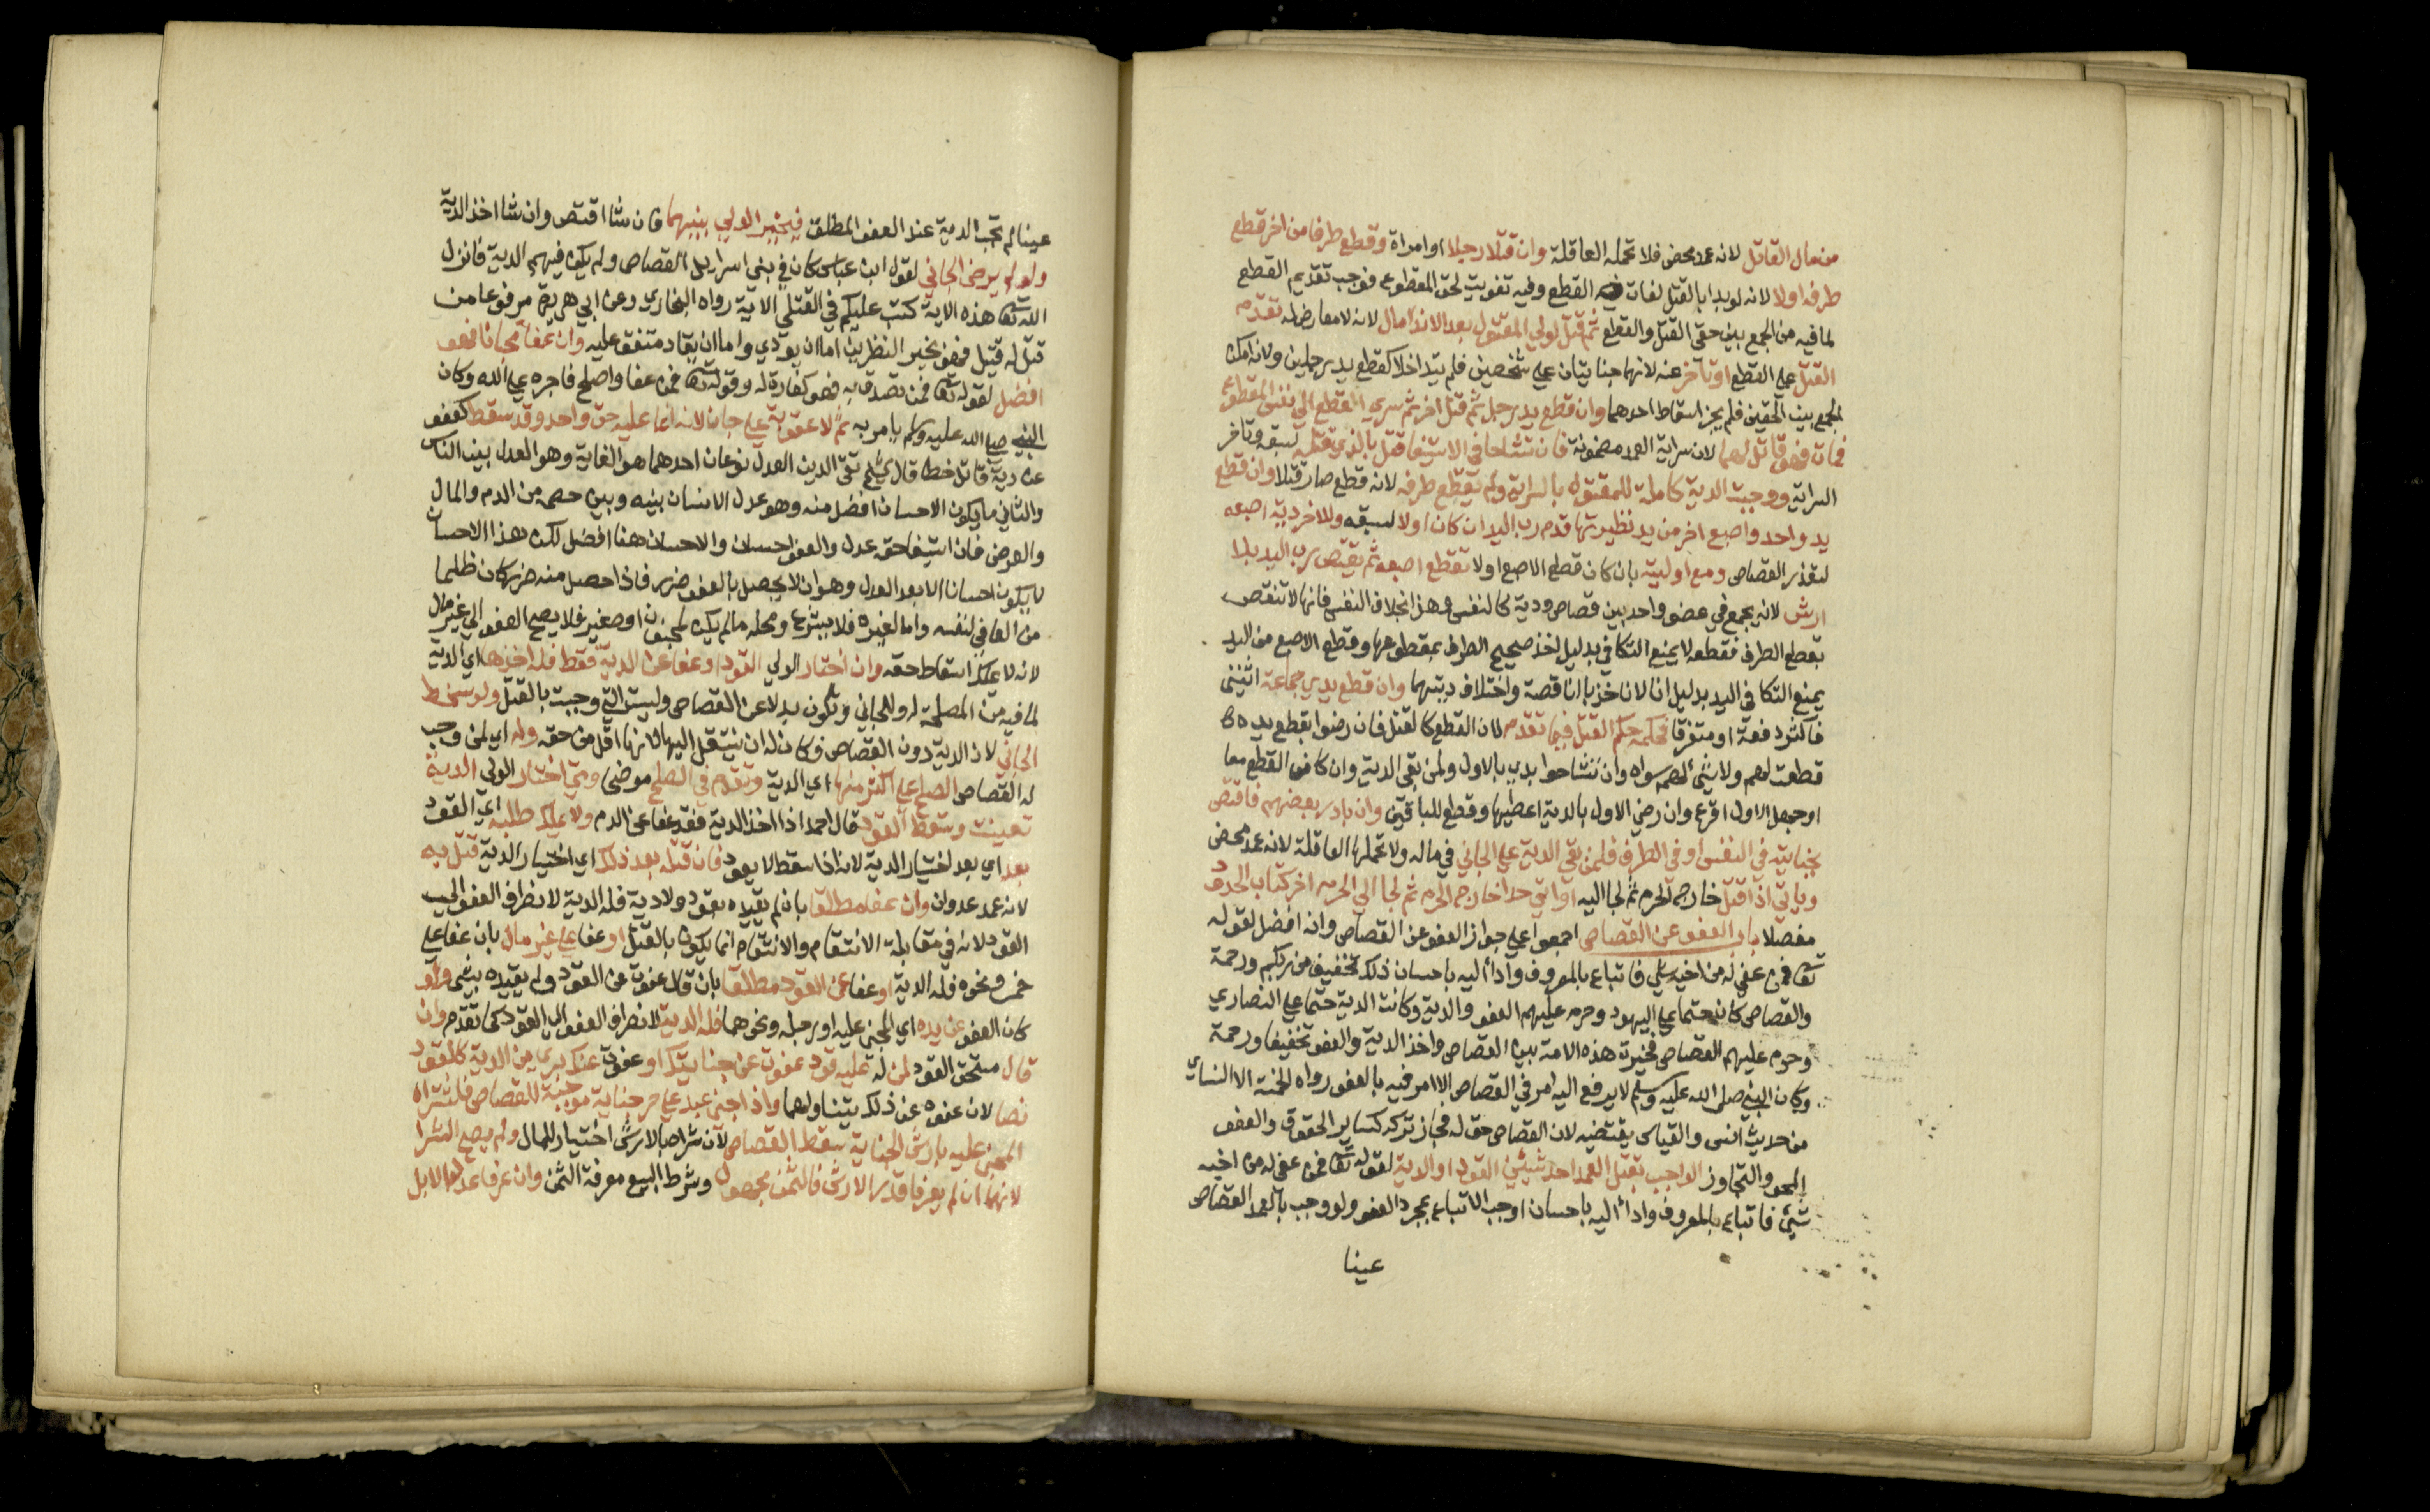 من مال القاتل لانه عمد محض فلا تحمله العاقلة وان قتلا رجلا او امراة وقطع طرفا من اخر قطع
طرفه اولا لانه لو بدا بالقتل لفات القطع وفيه تفويت لحق المقطوع فوجب تقديم القطع
لما فيه من الجمع بين حقي القتل والقطع ثم قتل لولي المقتول بعد الاندمال لانه لا معارض له تقدم
القتل علي القطع او تاخر عنه لانهما جنايتان علي شخصين فلم يتداخلا كقطع يد رجلين ولانه امكن
الجمع بين الحقين فلم يجز اسقاط احدهما وان قطع يد رجل ثم قتل اخر ثم سري القطع الي نفس المقطوع
فمات فهو قاتل لهما لان سراية العمد مضمونة فان تشاحا في الاستيفا قتل بالذي قتله لسبقه وتاخر
السراية ووجبت الدية كاملة للمقتول بالسراية ولم يقطع طرفه لانه قطع صار قتلا وان قطع
يد واحد واصبع اخر من يد نظيرتها قدم رب اليد ان كان اولا لسبقه وللاخر دية اصبعه
لتعذر القصاص ومع اوليته بان كان قطع الاصبع اولا تقطع اصبعه ثم يقتص رب اليد بلا
ارش لانه يجمع في عضو واحد بين قصاص ودية كالنفس وهذا بخلاف النفس فانها لا تنقص
بقطع الطرف فقطعه لا يمنع التكافي بدليل اخذ صحيح الطرف بمقطوعها وقطع الاصبع من اليد
يمنع التكافي اليد بدليل انا لا ناخذ باناقصة واختلاف ديتهما وان قطع يدي جماعة اثنين
فاكثر دفعة او متفرقا فحكمه حكم القتل فيما تقدم لان القطع كالقتل فان رضوا بقطع يده
قطعت لهم ولا شئ لهم سواه وان تشاحوا بدي بالاول ولمن بقي الدية وان كان القطع معا
او جهل الاول اقرع وان رضي الاول بالدية اعطيها وقطع للباقين وان بادر بعضهم فاقتص
بجنايته في النفس او في الطرف فلمن بقي الدية علي الجاني في ماله ولا تحملها العاقلة لانه عمد محض
وياتي اذا قتل خارجه الحرم ثم لجا اليه او اتي حدا خارجه الحرم ثم لجا الي الحرم اخر كتاب الحدود
مفصلا باب العفو عن القصاص اجمعوا علي جواز العفو عن القصاص وانه افضل لقوله
تعا فمن عفي له من اخيه شي فاتباع بالمعروف وادا اليه باحسان ذلك تخفيف من ربكم ورحمة
والقصاص كان حتما علي اليهود وحرم عليهم العفو والدية وكانت الدية حتما علي النصاري
وحرم عليهم القصاص فخيرت هذه الامة بين القصاص واخذ الدية والعفو تخفيفا ورحمة
وكان النبي صلي الله عليه وسلم لا يرفع اليه امر في القصاص الا امر فيه بالعفو رواه الخمسة الا النساي
من حديث انس والقياس يقتضيه لان القصاص حق له فجاز تركه كساير الحقوق والعفو
المحو والتجاوز الواجب بقتل العمد احد شيئين القود او الدية لقوله تعا فمن عفي له من اخيه
شئ فاتباع بالمعروف وادا اليه باحسان اوجب الاتباع بمجرد العفو ولو وجب بالعمد القصاص
عينا
عينا لم تجب الدية عند العفو المطلق فيخير الولي بينهما فان شا اقتص وان شا اخذ الدية
ولو لم يرض الجاني لقول ابن عباس كان في بني اسرايل القصاص ولم يكن فيهم الدية فانزل
الله تعا هذه الاية كتب عليكم في القتلي الاية رواه البخاري وعن ابي هريرة مرفوعا من
قتل له قتيل فهو بخير النظرين اما ان يودي واما ان يقاد متفق عليه وان عفا مجانا فهو
افضل لقوله تعا فمن تصدق به فهو كفارة له وقوله تعا فمن عفا واصلح فاجره علي الله وكان
النبي صلي الله عليه وسلم يامر به ثم لا عقوبة علي جان لانه انما عليه حق واحد وقد سقط كعفو
عن دية قاتل خطا قال الشيخ تقي الدين العدل نوعان احدهما هو الغاية وهو العدل بين الناس
والثاني ما يكون الاحسان افضل منه وهو عدل الانسان بينه وبين خصمه من الدم والمال
والعرض فان استيفا حقه عدل والعفو احسان والاحسان هنا افضل لكن هذا الاحسان
لا يكون احسانا الا بعد العدل وهو ان لا يحصل بالعفو ضرر فاذا حصل منه ضرر كان ظلما
من العافي لنفسه واما لغيره فلا يشرع ومحله ما لم يكن لمجنون او صغير فلا يصح العفو الي غير مال
لانه لا يملك اسقاط حقه وان اختار الولي القود او عفا عن الدية فقط فله اخذها اي الدية
لما فيه من المصلحة له وللجاني وتكون بدلا عن القصاص وليست التي وجبت بالقتل ولو سخط
الجاني لان الدية دون القصاص فكان له ان ينتقل اليها لانها اقل من حقه وله اي لمن وجب
له القصاص الصلح علي اكثر منها اي الدية وتقدم في الصلح موضحا ومتي اختار الولي الدية
تعينت وسقط القود قال احمد اذا اخذ الدية فقد عفا عن الدم ولا يملك طلبه اي القود
بعد اي بعد اختيار الدية لانه اذا سقط لا يعود فان قتله بعد ذلك اي اختيار الدية قتل به
لانه عمد عدوان وان عفا مطلقا بان لم يقيده بقود ولا دية فله الدية لانصراف العفو الي
القود لانه في مقابلة الانتقام والانتقام انما يكون بالقتل او عفا علي غير مال بان عفا علي
خمر ونحوه فله الدية او عفا عن القود مطلقا بان قال عفوت عن القود ولم يقيده بشي ولو
كان العفو عن يده اي المجني عليه او رجله ونحوهما فله الدية لانصراف العفو الي القود كما تقدم وان
قال مستحق القود لمن له عليه قود عفوت عن جنايتك او عفوت عنك بري من الدية كالقود
نصا لان عفوه عن ذلك يتناولهما واذا جني عبد علي حر جناية موجبة للقصاص فاشتراه
المجني عليه بارش الجناية سقط القصاص لان شراه بالارش اختيار للمال ولم يصح الشرا
لانهما ان لم يعرفا قدر الارش فالثمن مجهول وشرط البيع معرفة الثمن وان عرفا عدد الابل